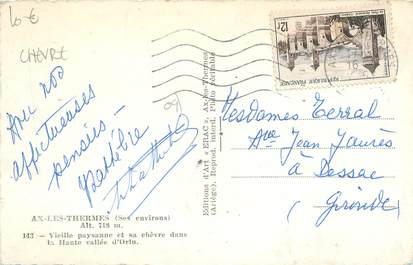 10 €
CHEVRE
12F
REPUBLIQUE FRANÇAISE
Avec nos
affectueuses
pensées -
Editions d'Art « ERAC » Ax-les-Thermes
(Ariège). Reprod. interd. Photo véritable
Mesdames Terral
Jean Jaurès
à Pessac
(Gironde)
AX-LES-THERMES (Ses environs)
Alt. 718 m.
143 - Vieille paysanne et sa chèvre dans
la Haute vallée d'Orlu.